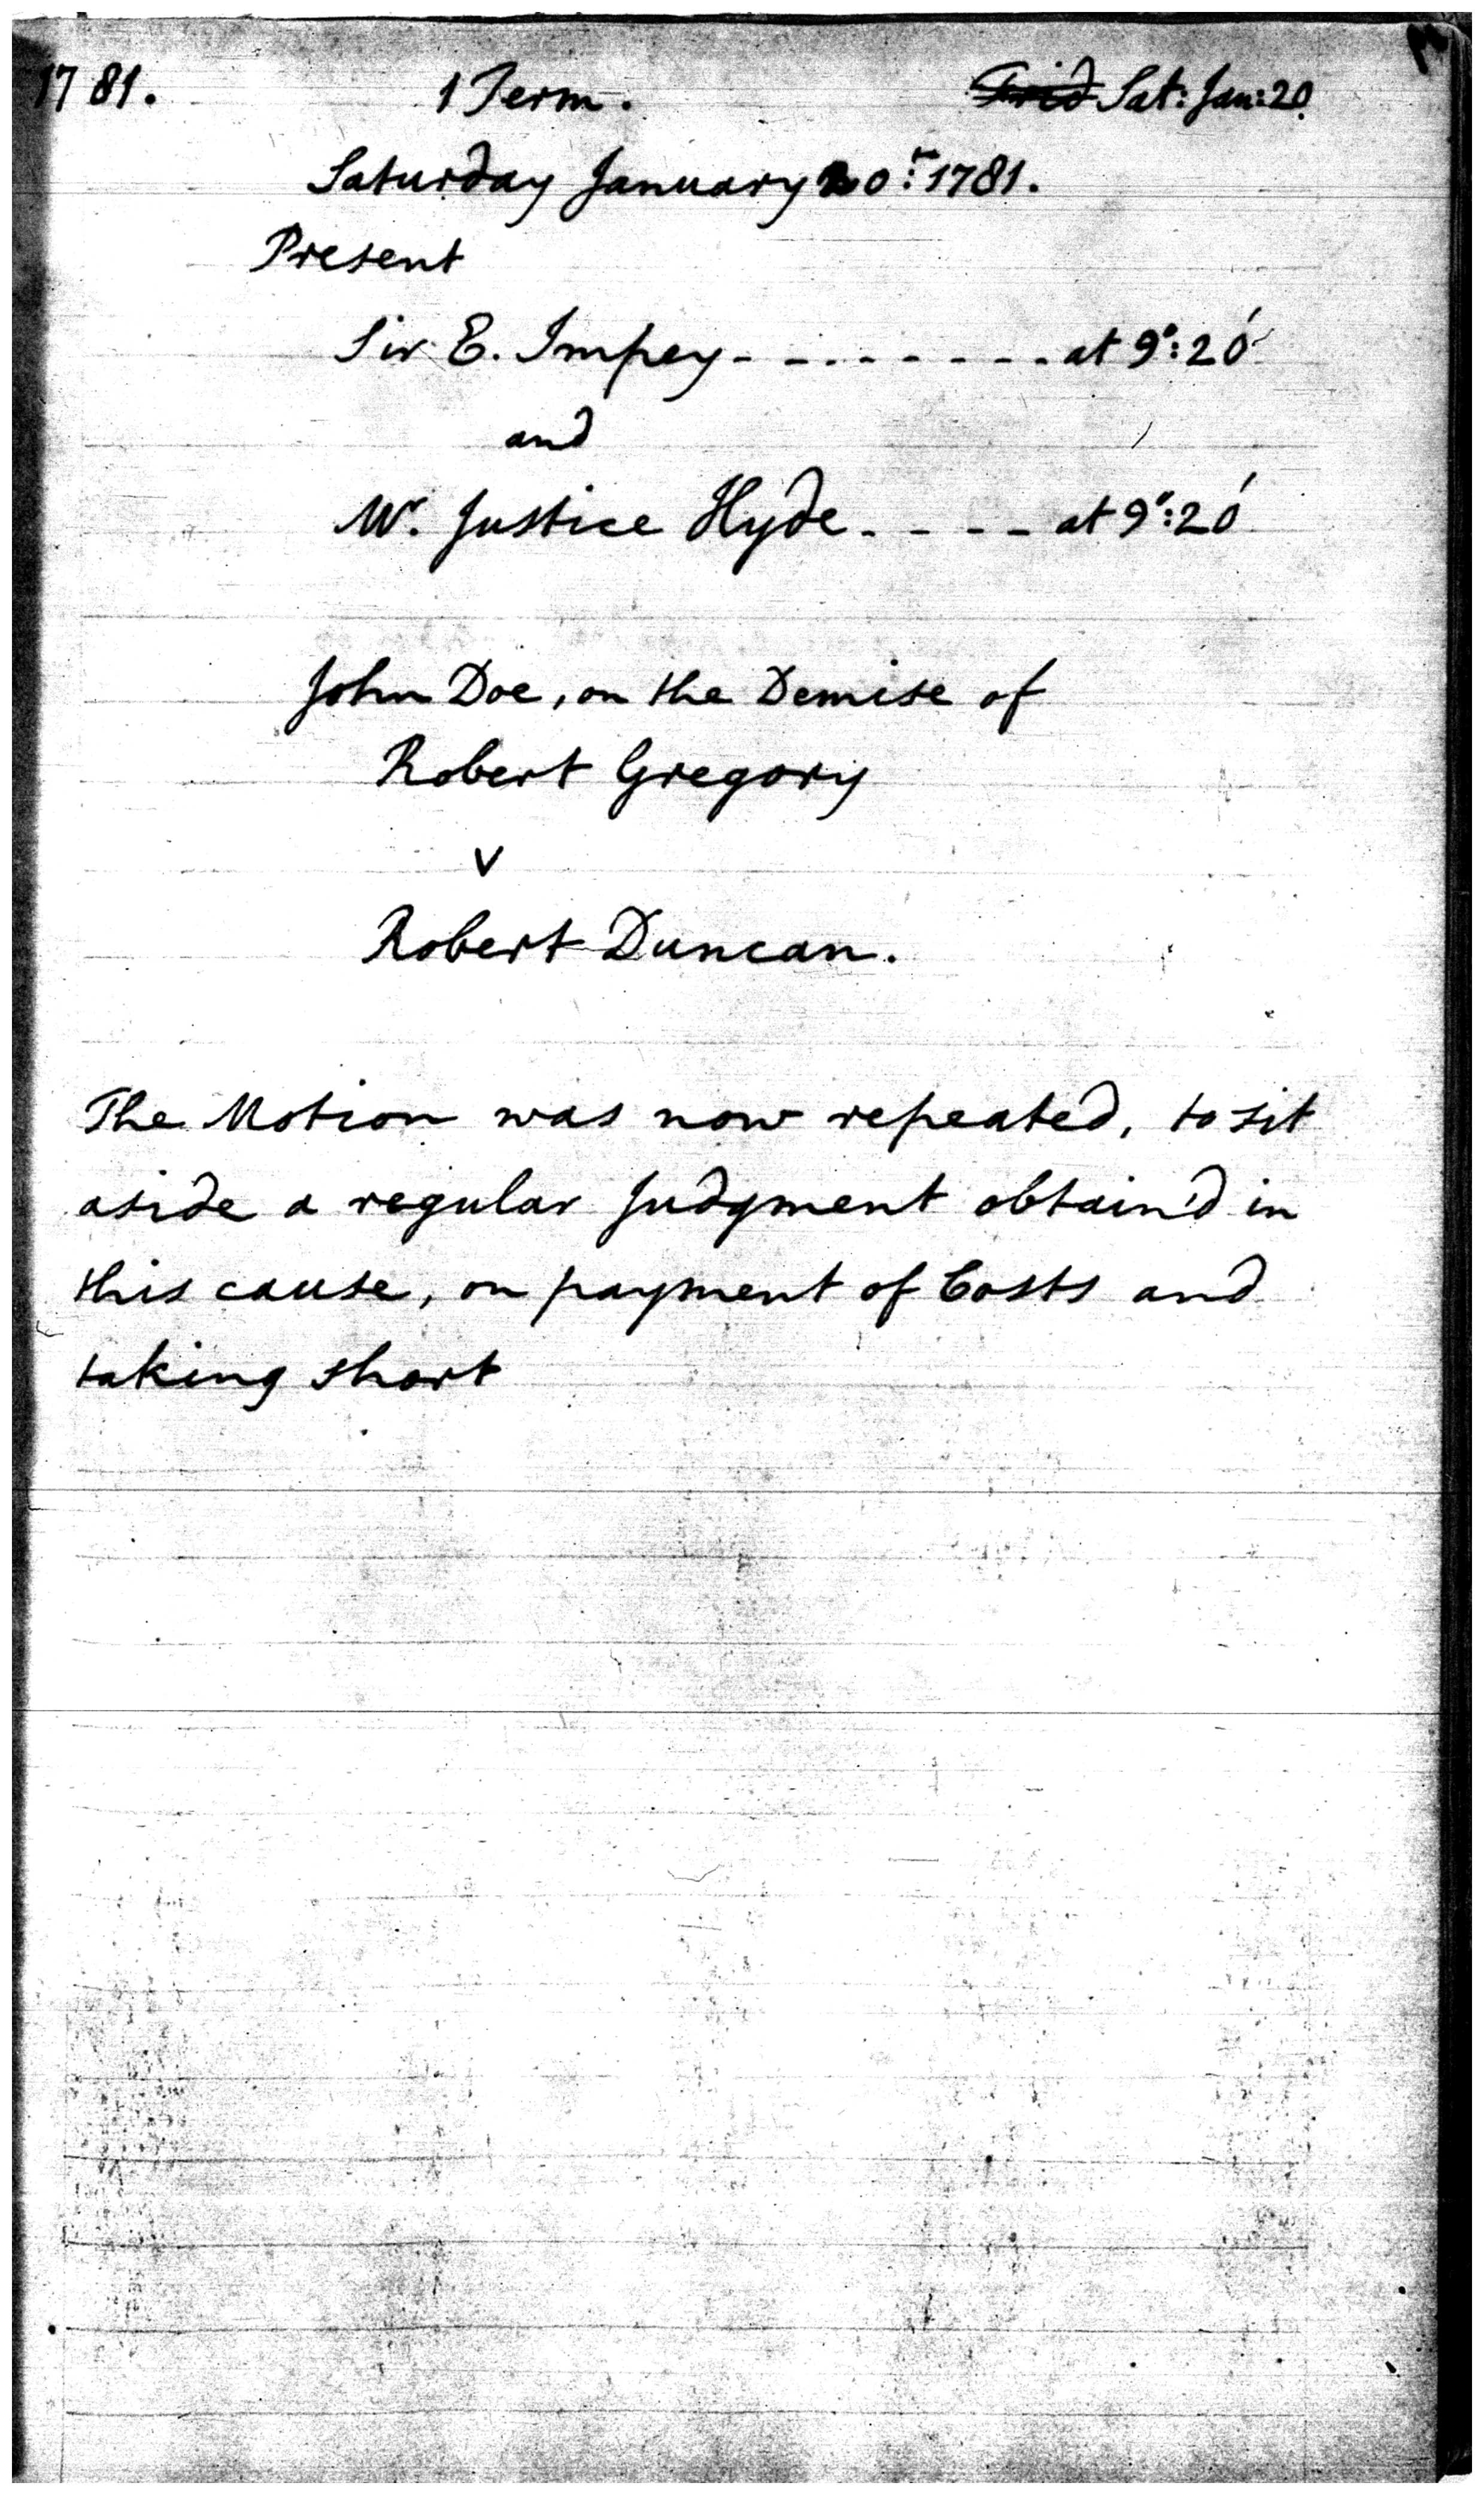 1781. 1 Term. Frid Sat: Jan: 20.
Saturday January 20.th 1781.
Present
Sir E. Impey - - - - - - - - - at 9°: 20'
and
Mr. Justice Hyde - - - - at 9°: 20'
John Doe, on the Demise of
Robert Gregory
v
Robert Duncan.
The Motion was now repeated, to sit
aside a regular Judgment obtain'd in
this cause, on payment of Costs and
taking short